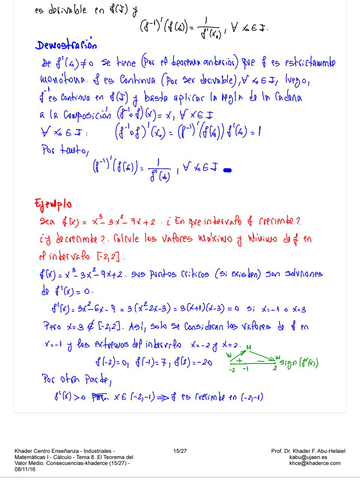 es derivable en f(J) y
(f⁻¹)'(f(x₀)) = 1/f'(x₀), ∀ x₀ ∈ J.
Demostración
De f'(x) ≠ 0 se tiene (por el teorema anterior) que f es estrictamente
monótona. f es continua (por ser derivable), ∀ x₀ ∈ J, luego,
f⁻¹ es continua en f(J) y basta aplicar la regla de la cadena
a la composición (f⁻¹∘f)(x) = x, ∀ x ∈ J
∀ x₀ ∈ J: (f⁻¹∘f)'(x₀) = (f⁻¹)'(f(x₀)) f'(x₀) = 1
Por tanto,
(f⁻¹)'(f(x₀)) = 1/f'(x₀), ∀ x₀ ∈ J
Ejemplo
Sea f(x) = x³ - 3x² - 9x + 2. ¿En que intervalo f creciente?
¿y decreciente?. Calcule los valores máximo y mínimo de f en
el intervalo [-2,2].
f(x) = x³ - 3x² - 9x + 2. sus puntos críticos (si existen) son soluciones
de f'(x) = 0.
f'(x) = 3x² - 6x - 9 = 3(x² - 2x - 3) = 3(x+1)(x-3) = 0 si x = -1 o x = 3
Pero x = 3 ∉ [-2,2]. Así, solo se consideran los valores de f en
x = -1 y los extremos del intervalo x = -2 y x = 2.
f(-2) = 0, f(-1) = 7, f(2) = -20
M
m
+
-
-2 -1 2 sign(f'(x))
Por otra parte,
f'(x) > 0 x ∈ (-2,-1) ⟹ f es creciente en (-2,-1)
Khader Centro Enseñanza - Industriales -
Matemáticas I - Cálculo - Tema 8. El Teorema del
Valor Medio. Consecuencias-khaderce (15/27) -
08/11/16
15/27
Prof. Dr. Khader F. Abu-Helaiel
kabu@ujaen.es
khce@khaderce.com